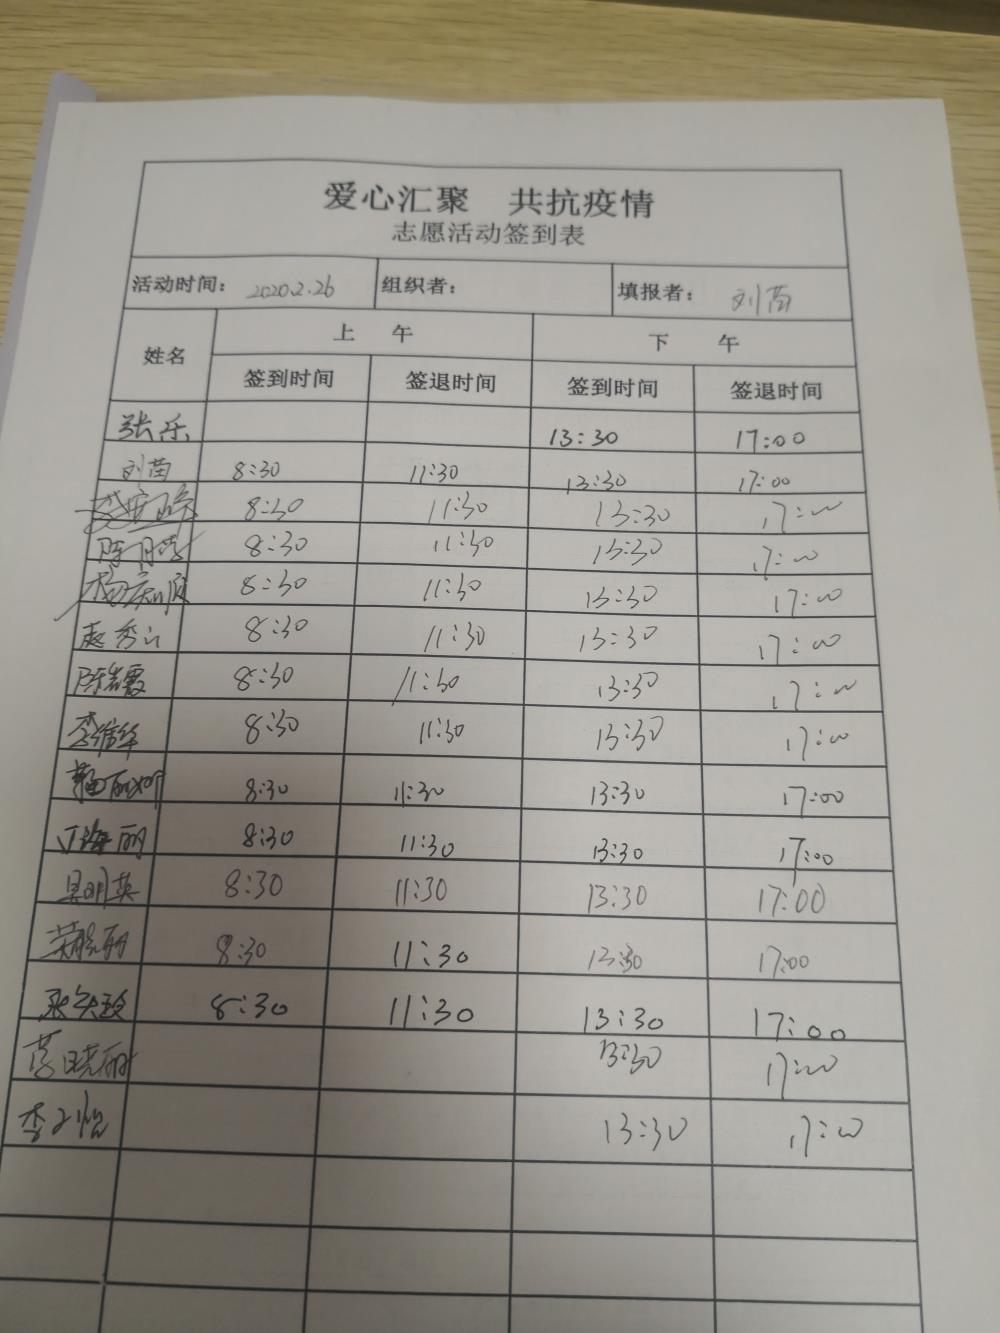 爱心汇聚 共抗疫情
志愿活动签到表
活动时间： 2020.2.26 组织者： 填报者： 刘茵
姓名 上 午 下 午
签到时间 签退时间 签到时间 签退时间
张乐 13:30 17:00
刘茵 8:30 11:30 13:30 17:00
8:30 11:30 13:30 17:00
陈月 8:30 11:30 13:30 17:00
8:30 11:30 13:30 17:00
赵秀 8:30 11:30 13:30 17:00
陈 霞 8:30 11:30 13:30 17:00
李维华 8:30 11:30 13:30 17:00
8:30 11:30 13:30 17:00
丁海丽 8:30 11:30 13:30 17:00
吴明英 8:30 11:30 13:30 17:00
丽 8:30 11:30 13:30 17:00
8:30 11:30 13:30 17:00
晓丽 13:30 17:00
李 怡 13:30 17:00